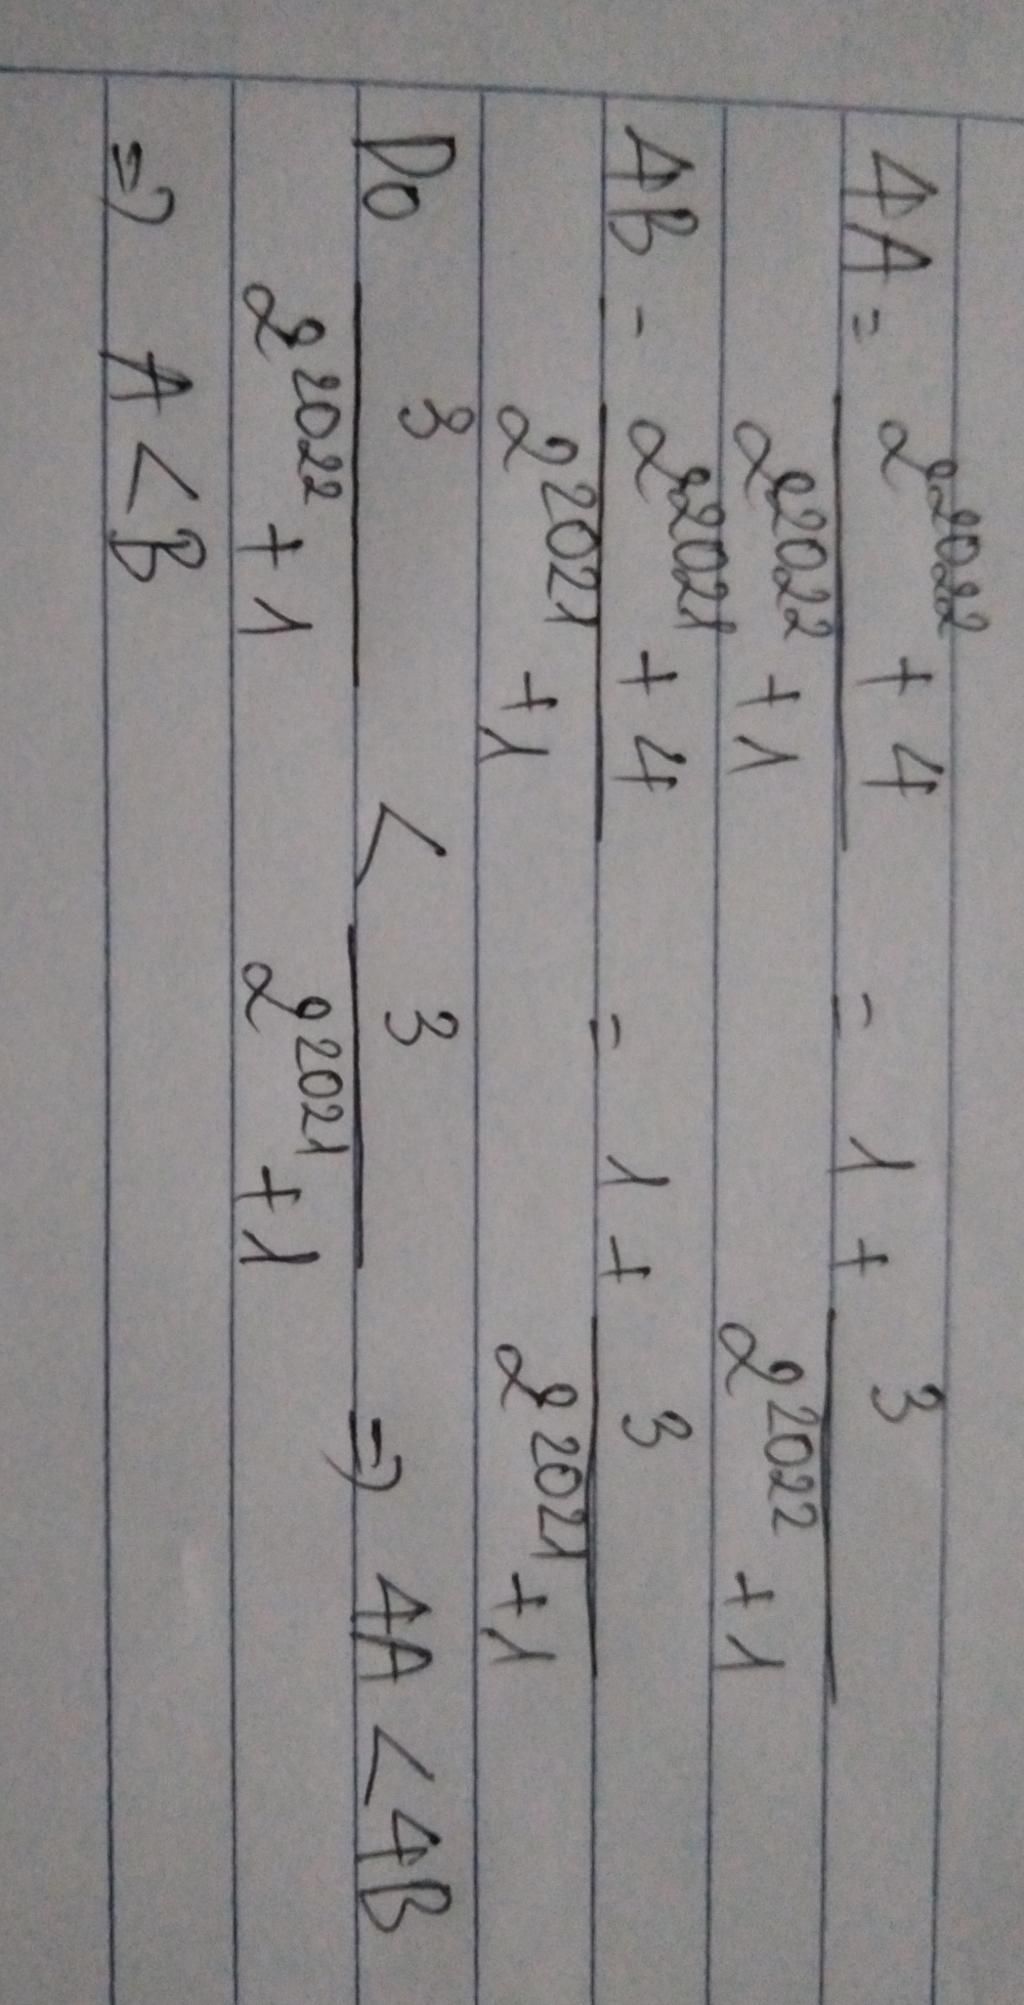 4A = 2^2022 + 4 / 2^2022 + 1 = 1 + 3 / 2^2022 + 1
4B - 2^2021 + 4 / 2^2021 + 1 = 1 + 3 / 2^2021 + 1
Do 3 / 2^2022 + 1 < 3 / 2^2021 + 1 => 4A < 4B
=> A < B